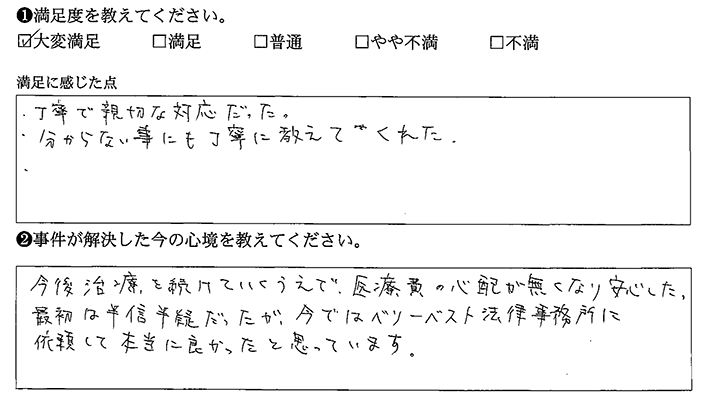 ❶満足度を教えてください。
☑大変満足 □満足 □普通 □やや不満 □不満
満足に感じた点
・丁寧で親切な対応だった。
・分からない事にも丁寧に教えてくれた.
・
❷事件が解決した今の心境を教えてください。
今後治療を続けていくうえで、医療費の心配が無くなり安心した。
最初は半信半疑だったが、今ではベリーベスト法律事務所に
依頼して本当に良かったと思っています。